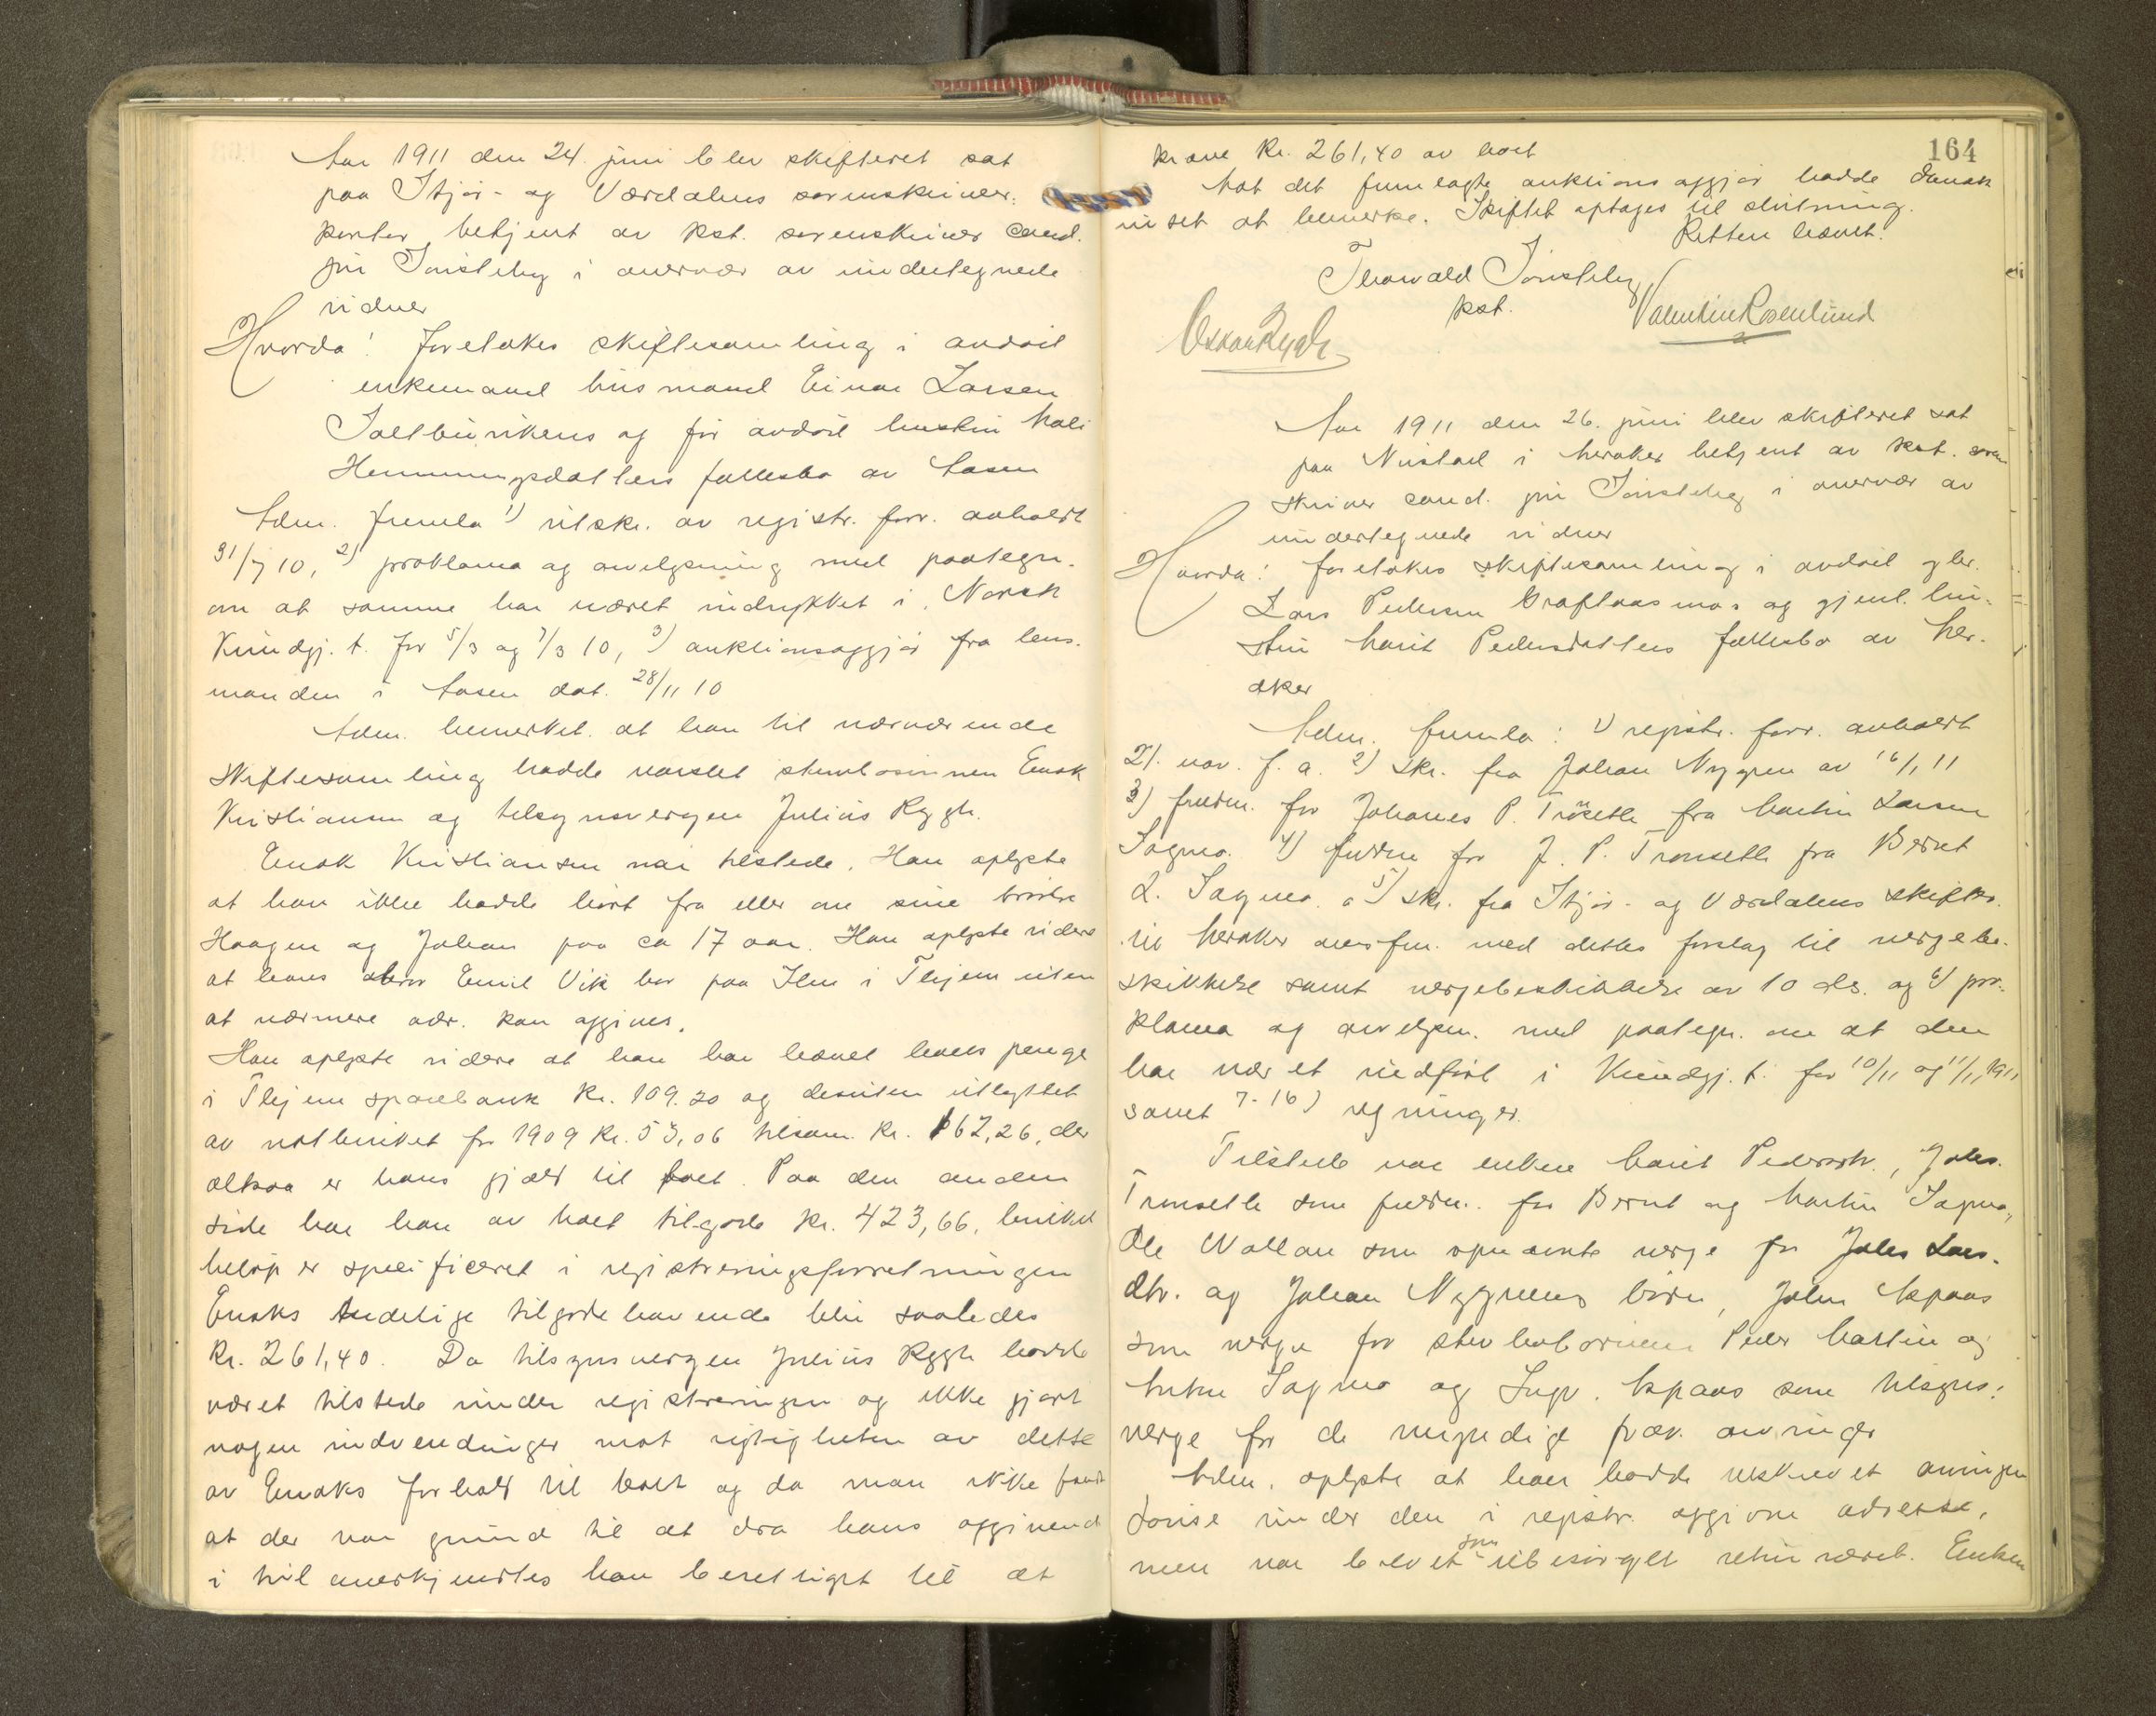 Aar 1911 den 24. juni blev skifteret sat
paa Stjør- og Værdalens sorenskriver-
kontor, betjent av kst. sorenskriver cand.
jur Tonsteby i overvær av undertegnede
vidner
Hvorda! foretokes skiftesamling i avdøde
enkemand husmand Einar Larsen
Saltbuvikens og før avdøde hustru Mali
Hemmingsdatters fællesbo av Aasen
Adm. fremla 1) utskr. av registr. forr. avholdt
31/7 10, 2) proklama og avlysning med paategn.
om at samme har været indrykket i Norsk
Kundgj. t. for 5/3 og 7/3 10, 3) auktionsopgjør fra lens-
manden i Aasen dat. 28/11 10
Adm. bemerket at han til nærværende
skiftesamling hadde varslet stervbosønnen Enok
Kristiansen og tilsynsvergen Julius Rygh.
Enok Kristiansen var tilstede. Han oplyste
at han ikke hadde hørt fra eller om sine brødre
Haagen og Johan paa ca 17 aar. Han oplyste videre
at hans bror Emil Vik bor paa Ilen i Thjem uten
at nærmere adr. kan opgives.
Han oplyste videre at han har hævet boets penge
i Thjem sparebank kr. 109.20 og desuten utbyttet
av notbruket for 1909 kr. 53,06 tilsam. kr. 162,26, der
altsaa er hans gjæld til boet. Paa den anden
side har han av boet tilgode kr. 423,66, hvilket
beløp er specificeret i registreringsforretningen
Enoks endelige tilgodehavende blir saaledes
kr. 261,40. Da tilsynsvergen Julius Rygh hadde
været tilstede under registreringen og ikke gjort
nogen indvendinger mot rigtigheten av dette
av Enoks forhold til boet og da man ikke fandt
at der var grund til at dra hans opgivende
i tvil anerkjendtes han berettiget til at
164
kræve kr. 261,40 av boet
Mot det fremlagte auktionsopgjør hadde Enok
intet at bemerke. Skiftet optages til slutning.
Retten hævet.
Thorvald Tonsteby
kst.
Valentin Rosenlund
Oskar Rygh
Aar 1911 den 26. juni blev skifteret sat
paa Nustad i Meraker betjent av kst. soren
skriver cand. jur Tonsteby i overvær av
undertegnede vidner
Hvorda! foretokes skiftesamling i avdøde gbr.
Lars Pedersen Graftaasmo og gjenl. hu-
stru Marit Pedersdatters fællesbo av Mer-
aker
Adm. fremla: 1) registr. forr. avholdt
21. nov. f. a. 2) skr. fra Johan Nygren av 16/1 11
3) fuldm. for Johanes P. Trøsetle fra Martin Larsen
Sagmo. 4) fuldm for J. P. Tronsetle fra Bernt
L. Sagmo. 5) skr. fra Stjør- og Værdalens skifter.
til Meraker oversfm. med dettes forslag til vergebe-
skikkelse samt vergebeskikkelse av 10 ds. og 6) pro-
klama og avlysn. med paategn. om at den
har været indført i Kundgj. t. for 10/11 og 11/11 1911
samt 7-16) regninger.
Tilstede var enken Marit Pedersdtr., Johs.
Tronsetle som fuldm. for Bernt og Martin Sagmo,
Ole Wollan som opnævnte verge for Johs Lars-
dtr. og Johan Nygrens børn, John Aspaas
som verge for stervbobørnene Peder Martin og
Sagmo og Ingv. Aspaas som tilsyns-
verge for de umyndige præv. arvinger
Adm. oplyste at han hadde tilskrevet arvingen
Lovise under den i registr. opgivne adresse,
men var brevet som ubesørget returneret. Enken